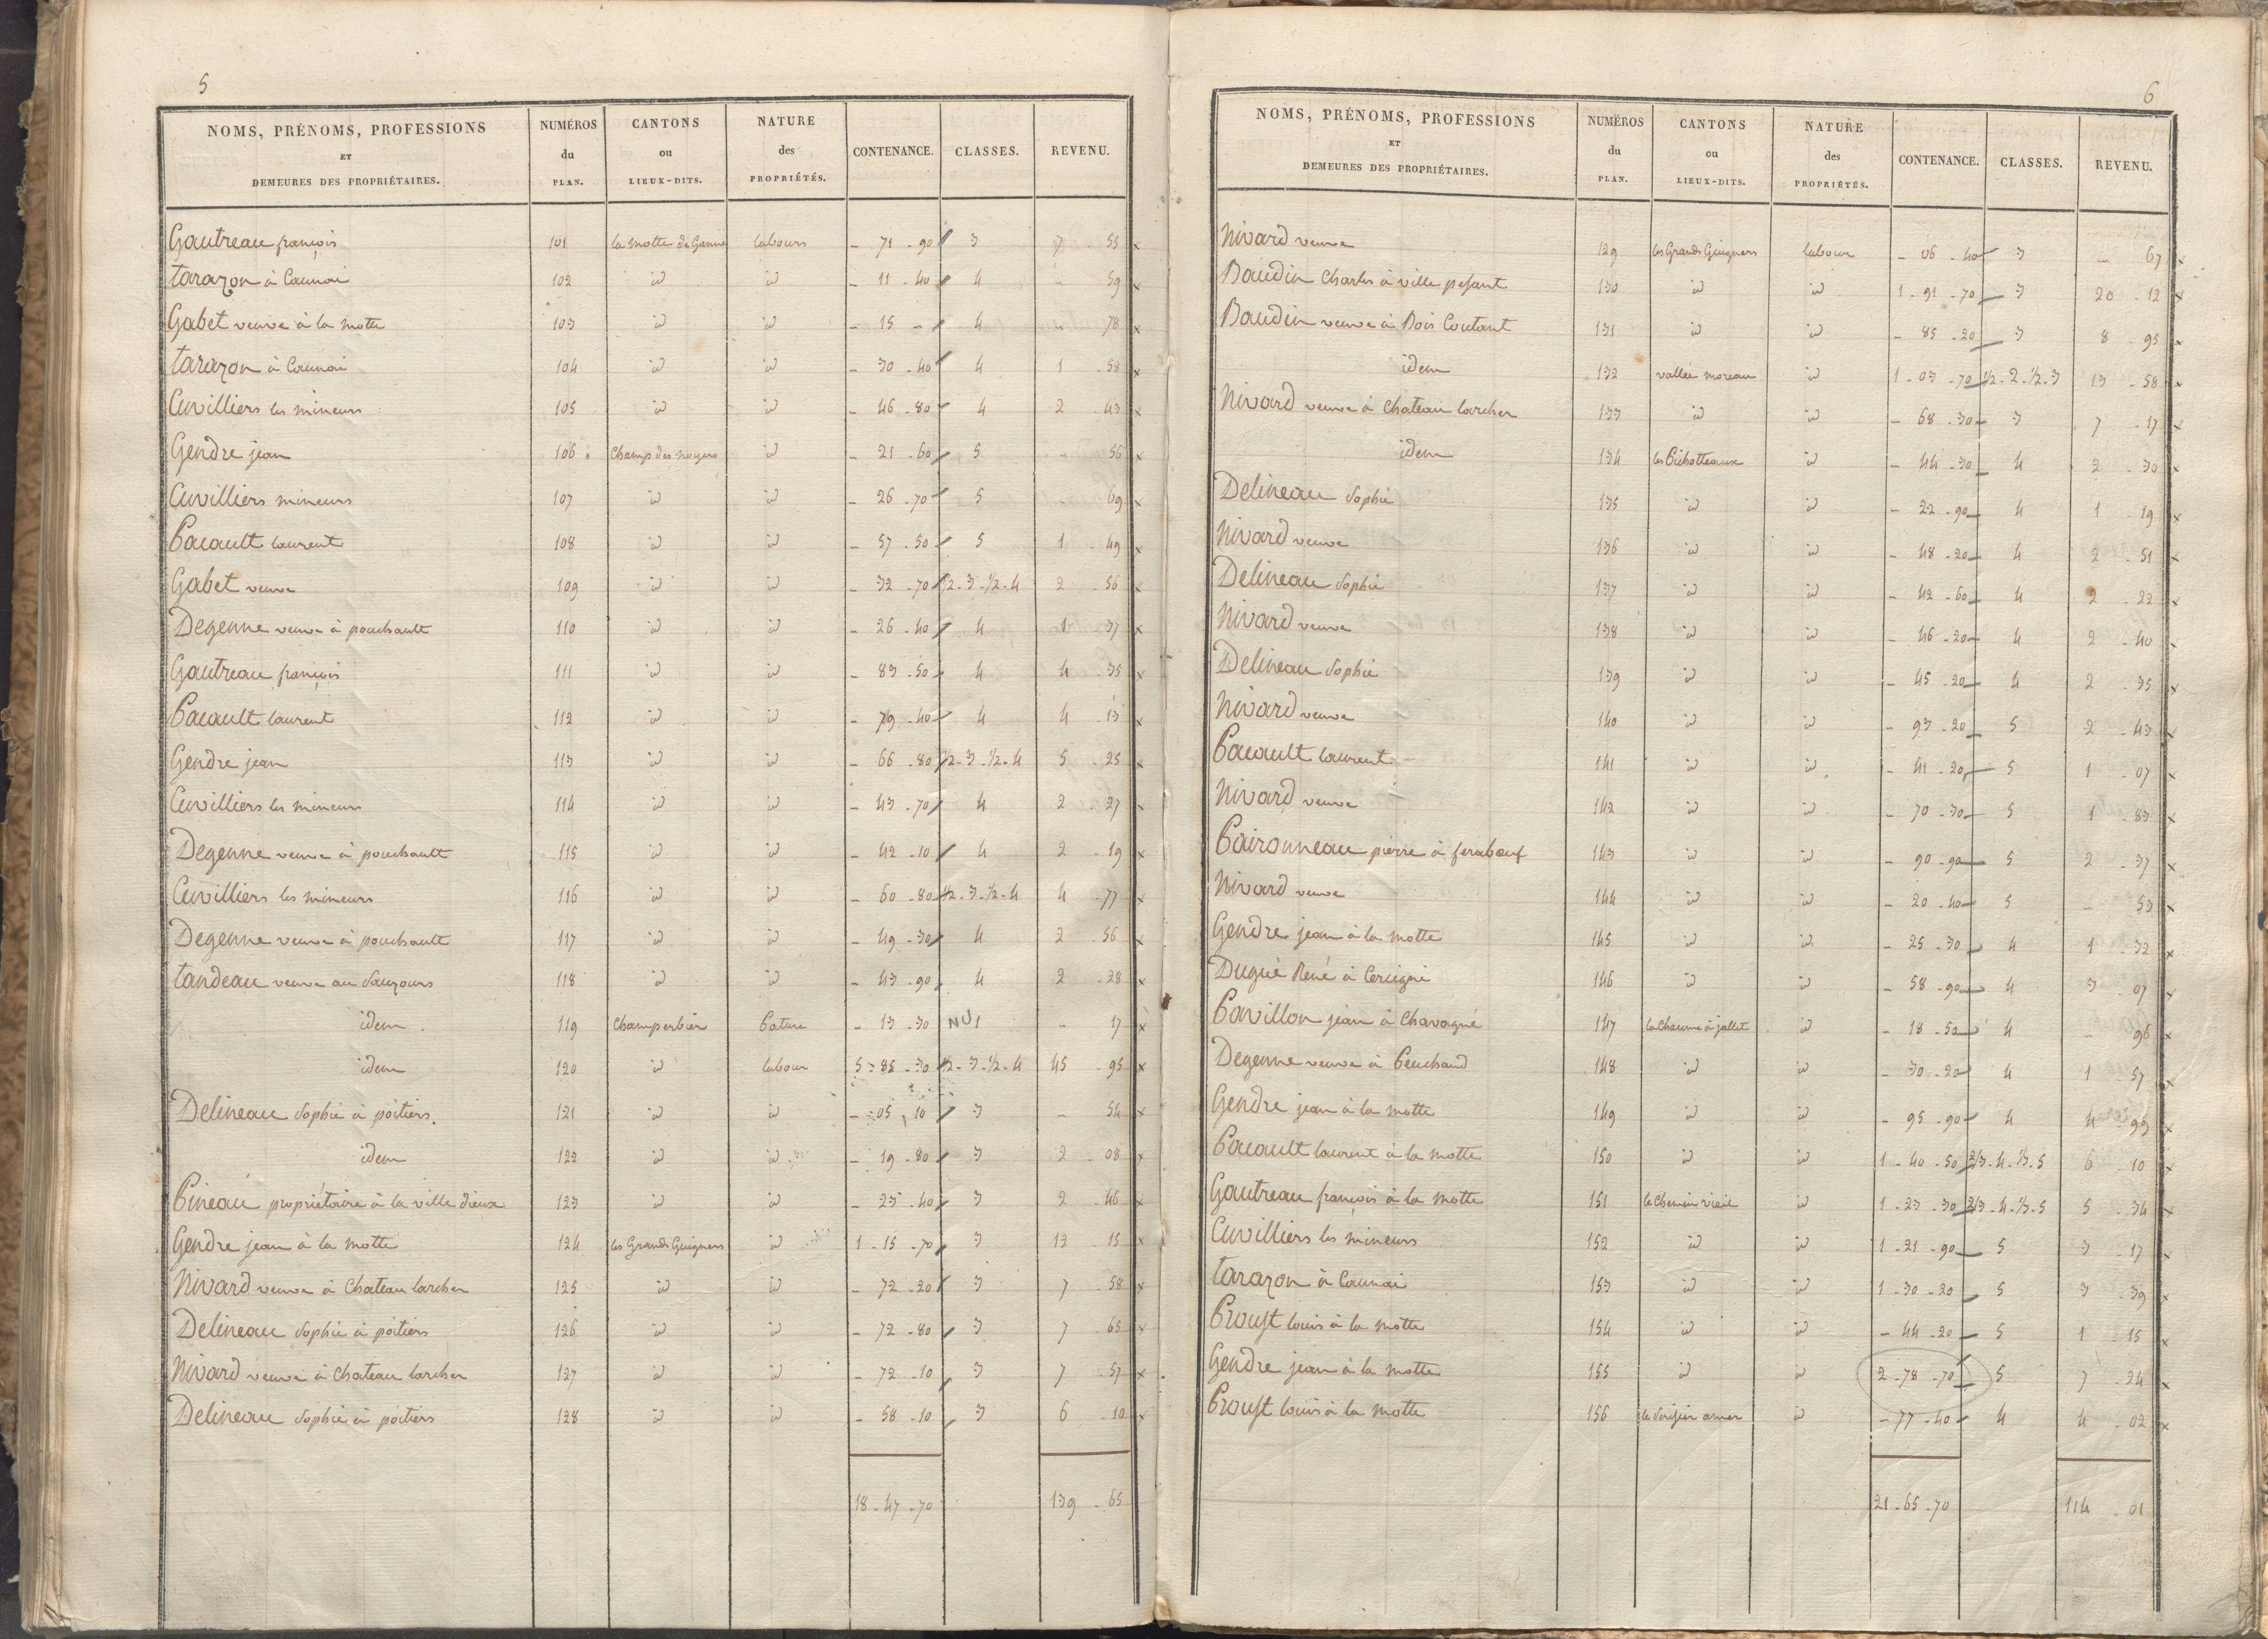 5
NOMS, PRÉNOMS, PROFESSIONS ET DEMEURES DES PROPRIÉTAIRES. NUMÉROS du PLAN. CANTONS ou LIEUX-DITS. NATURE des PROPRIÉTÉS. CONTENANCE. CLASSES. REVENU.
Gautreau françois 101 la motte de Ganne labours - 71 - 90 3 7 - 55 x
tarazon à Caunai 102 id id - 11 - 40 4 - 59 x
Gabet veuve à la motte 103 id id - 15 - 4 - 78 x
tarazon à Caunai 104 id id - 30 - 40 4 1 - 58 x
Cuvilliers les mineurs 105 id id - 46 - 80 4 2 - 43 x
Gendre jean 106 Champ des noyers id - 21 - 60 5 - 56 x
Cuvilliers mineurs 107 id id - 26 - 70 5 - 69 x
Pacault laurent 108 id id - 57 - 50 5 1 - 49 x
Gabet veuve 109 id id - 32 - 70 1/2 - 3 - 1/2 - 4 2 - 56 x
Degenne veuve à pouchault 110 id id - 26 - 40 4 1 - 37 x
Gautreau françois 111 id id - 83 - 50 4 4 - 35 x
Pacault laurent 112 id id - 79 - 40 4 4 - 13 x
Gendre jean 113 id id - 66 - 80 1/2 - 3 - 1/2 - 4 5 - 25 x
Cuvilliers les mineurs 114 id id - 43 - 70 4 2 - 27 x
Degenne veuve à pouchault 115 id id - 42 - 10 4 2 - 19 x
Cuvilliers les mineurs 116 id id - 60 - 80 1/2 - 3 - 1/2 - 4 4 - 77 x
Degenne veuve à pouchault 117 id id - 49 - 30 4 2 - 56 x
tandeau veuve au Sauzours 118 id id - 43 - 90 4 2 - 28 x
idem 119 Champerbier Pature - 13 - 30 NU1 - 17 x
idem 120 id labour 5 - 85 - 30 1/2 - 3 - 1/2 - 4 45 - 95 x
Delineau Sophie à poitiers. 121 id id - 05 - 10 3 - 54 x
idem 122 id id - 19 - 80 3 2 - 08 x
Pineau propriétaire à la ville dieux 123 id id - 23 - 40 3 2 - 46 x
Gendre jean à la motte 124 les Grands Guigners id 1 - 15 - 70 3 12 - 15 x
Nivard veuve à Chateau larcher 125 id id - 72 - 20 3 7 - 58 x
Delineau Sophie à poitiers 126 id id - 72 - 80 3 7 - 65 x
Nivard veuve à Chateau larcher 127 id id - 72 - 10 3 7 - 57 x
Delineau Sophie à poitiers 128 id id - 58 - 10 3 6 - 10 x
18 - 47 - 70 139 - 65
6
NOMS, PRÉNOMS, PROFESSIONS ET DEMEURES DES PROPRIÉTAIRES. NUMÉROS du PLAN. CANTONS ou LIEUX-DITS. NATURE des PROPRIÉTÉS. CONTENANCE. CLASSES. REVENU.
Nivard veuve 129 les Grands Guigners labour - 06 - 40 3 - 67 x
Baudin Charles à ville pesant 130 id id 1 - 91 - 70 3 20 - 12 x
Baudin veuve à Bois Coutant 131 id id - 85 - 20 3 8 - 95 x
idem 132 vallée moreau id 1 - 03 - 70 1/2 - 2 - 1/2 - 3 13 - 58 x
Nivard veuve à Chateau larcher 133 id id - 68 - 30 3 7 - 17 x
idem 134 les Pichotteaux id - 44 - 30 4 2 - 30 x
Delineau Sophie 135 id id - 22 - 90 4 1 - 19 x
Nivard veuve 136 id id - 48 - 20 4 2 - 51 x
Delineau Sophie 137 id id - 42 - 60 4 2 - 22 x
Nivard veuve 138 id id - 46 - 20 4 2 - 40 x
Delineau Sophie 139 id id - 45 - 20 4 2 - 35 x
Nivard veuve 140 id id - 93 - 20 5 2 - 43 x
Pacault laurent 141 id id - 41 - 20 5 1 - 07 x
Nivard veuve 142 id id - 70 - 30 5 1 - 83 x
Paironneau pierre à feraboeuf 143 id id - 90 - 90 5 2 - 37 x
Nivard veuve 144 id id - 20 - 40 5 - 53 x
Gendre jean à la motte 145 id id - 25 - 30 4 1 - 32 x
Dugué René à Cercigné 146 id id - 58 - 90 4 3 - 07 x
Pavillon jean à Chavagné 147 la Chaume à jallet id - 18 - 50 4 - 96 x
Degenne veuve à Peuchaud 148 id id - 30 - 20 4 1 - 57 x
Gendre jean à la motte 149 id id - 95 - 90 4 4 - 99 x
Pacault laurent à la motte 150 id id 1 - 40 - 50 2/3 - 4 - 1/3 - 5 6 - 10 x
Gautreau françois à la motte 151 le Chemin vieil id 1 - 23 - 30 2/3 - 4 - 1/3 - 5 5 - 34 x
Cuvilliers les mineurs 152 id id 1 - 21 - 90 5 3 - 17 x
tarazon à Caunai 153 id id 1 - 30 - 20 5 3 - 39 x
Proust louis à la motte 154 id id - 44 - 20 5 1 - 15 x
Gendre jean à la motte 155 id id 2 - 78 - 70 5 7 - 24 x
Proust louis à la motte 156 le Serisier amer id - 77 - 40 4 4 - 02 x
21 - 65 - 70 114 - 01